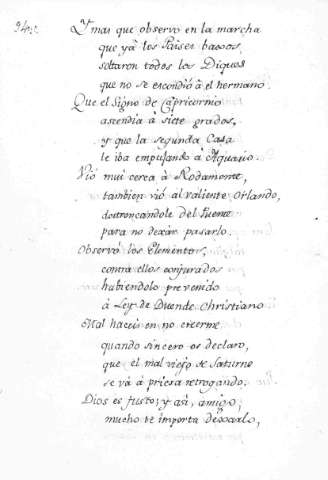 Y mas que observo en la marcha
que yâ los Paises baxos,
soltaron todos los Diques
que no se escondiô â el hermano.
Que el Signo de Capricornio
ascendia â siete grados,
y que la segunda Casa
le iba empujando â Aquario.
Viô mui cerca â Rodamonte,
tambien viô al valiente Orlando,
destroncandole del Puente
para no dexár pasarlo.
Observô los Elementos,
contra ellos conjurados
habiendolo prevenido
â Ley de Duende Christiano
Mal haceis en no creerme
quando sincero os declaro,
que el mal viejo de Saturno
se vâ â priesa retrogando.
Dios es justo, y asi, amigo,
mucho te importa dexarlo,